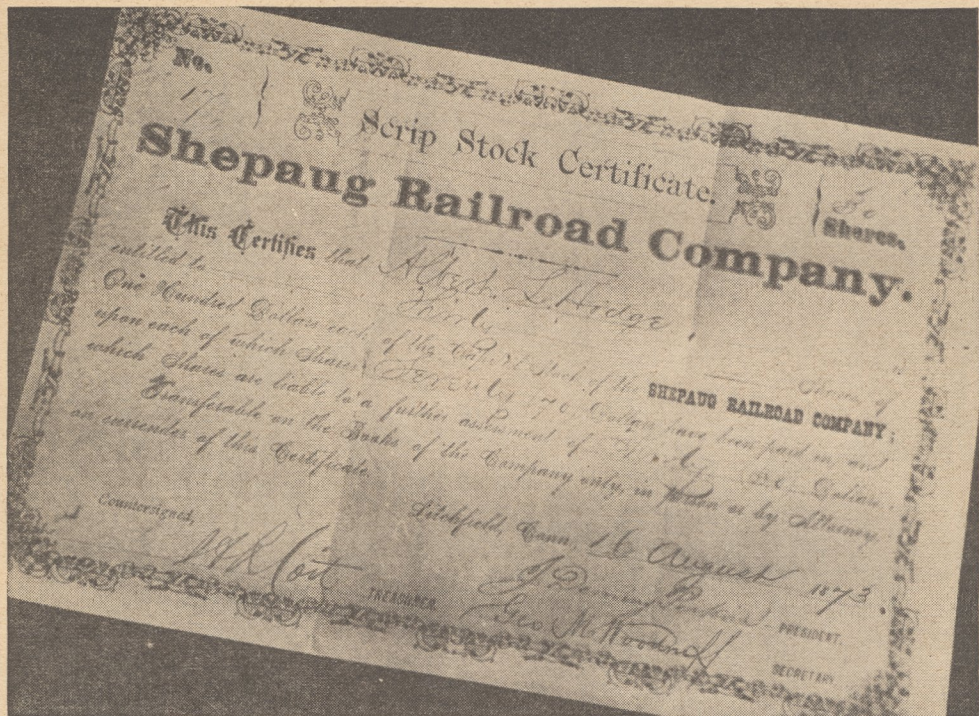 No.
17
Scrip Stock Certificate.
Shares.
Shepaug Railroad Company.
This Certifies that Albert L. Hodge
entitled to Shares of
One Hundred Dollars each, of the Capital Stock of the SHEPAUG RAILROAD COMPANY;
upon each of which Shares Seventy 70 Dollars have been paid in, and
which Shares are liable to a further assessment of Dollars.
Transferable on the Books of the Company only, in person or by Attorney
on surrender of this Certificate.
Litchfield, Conn, 16 August 1873.
Countersigned,
Coit
TREASURER.
J Deming Perkins PRESIDENT.
Geo. M. Woodruff SECRETARY